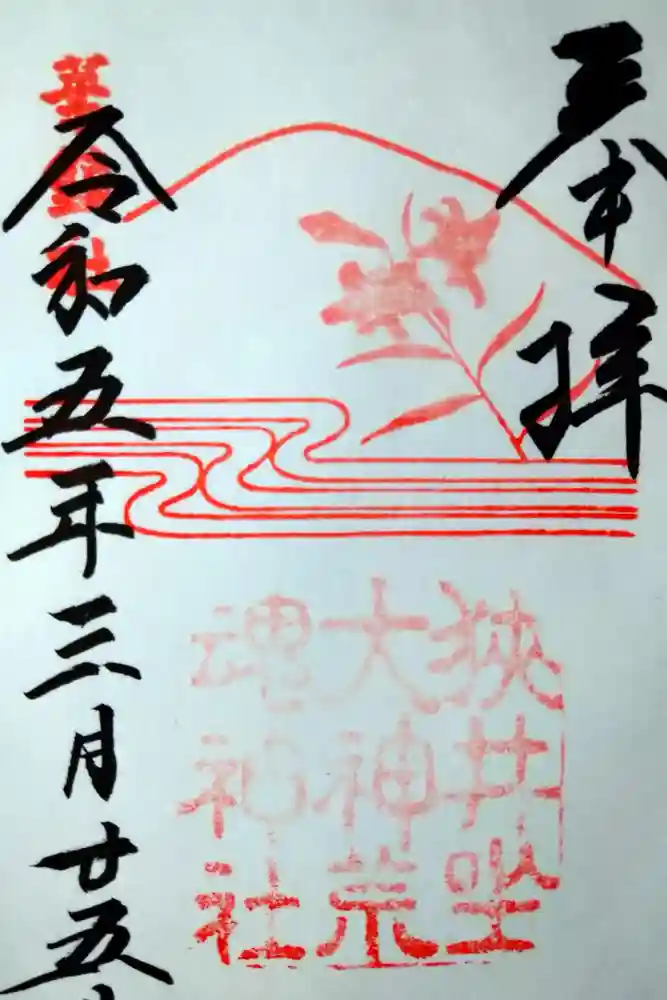 奉拝
狭井坐
大神荒
魂神社
華鎮社
令和五年三月廿五日